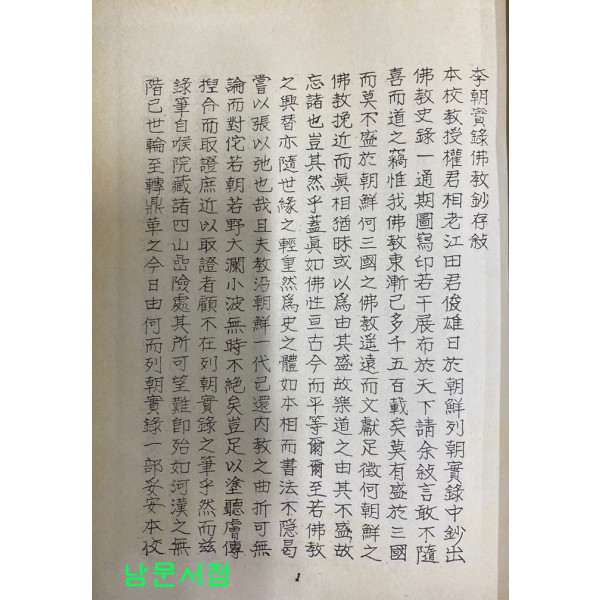 李朝實錄佛教鈔存敍
本校教授權君相老江田君俊雄日於朝鮮列朝實錄中鈔出
佛教史錄一通期圖寫印若干展布於天下請余敍言敢不隨
喜而道之竊惟我佛教東漸已多千五百載矣莫有盛於三國
而莫不盛於朝鮮何三國之佛教遥遠而文獻足徵何朝鮮之
佛教挽近而眞相猶昧或以爲由其盛故樂道之由其不盛故
忘諸也豈其然乎蓋眞如佛性亘古今而平等爾爾至若佛教
之興替亦隨世緣之輕重然爲史之體如本相而書法不隱曷
嘗以張以弛也哉且夫教沿朝鮮一代已還内教之曲折可無
論而對佗若朝若野大瀾小波無時不絶矣豈足以塗聽膚傳
揑合而取證庶近以取證者顧不在列朝實錄之筆乎然而兹
錄筆自喉院藏諸四山嵒險處其所可望難即殆如河漢之無
階已世輪至轉鼎革之今日由何而列朝實錄一部妥安本校
1
남문서점